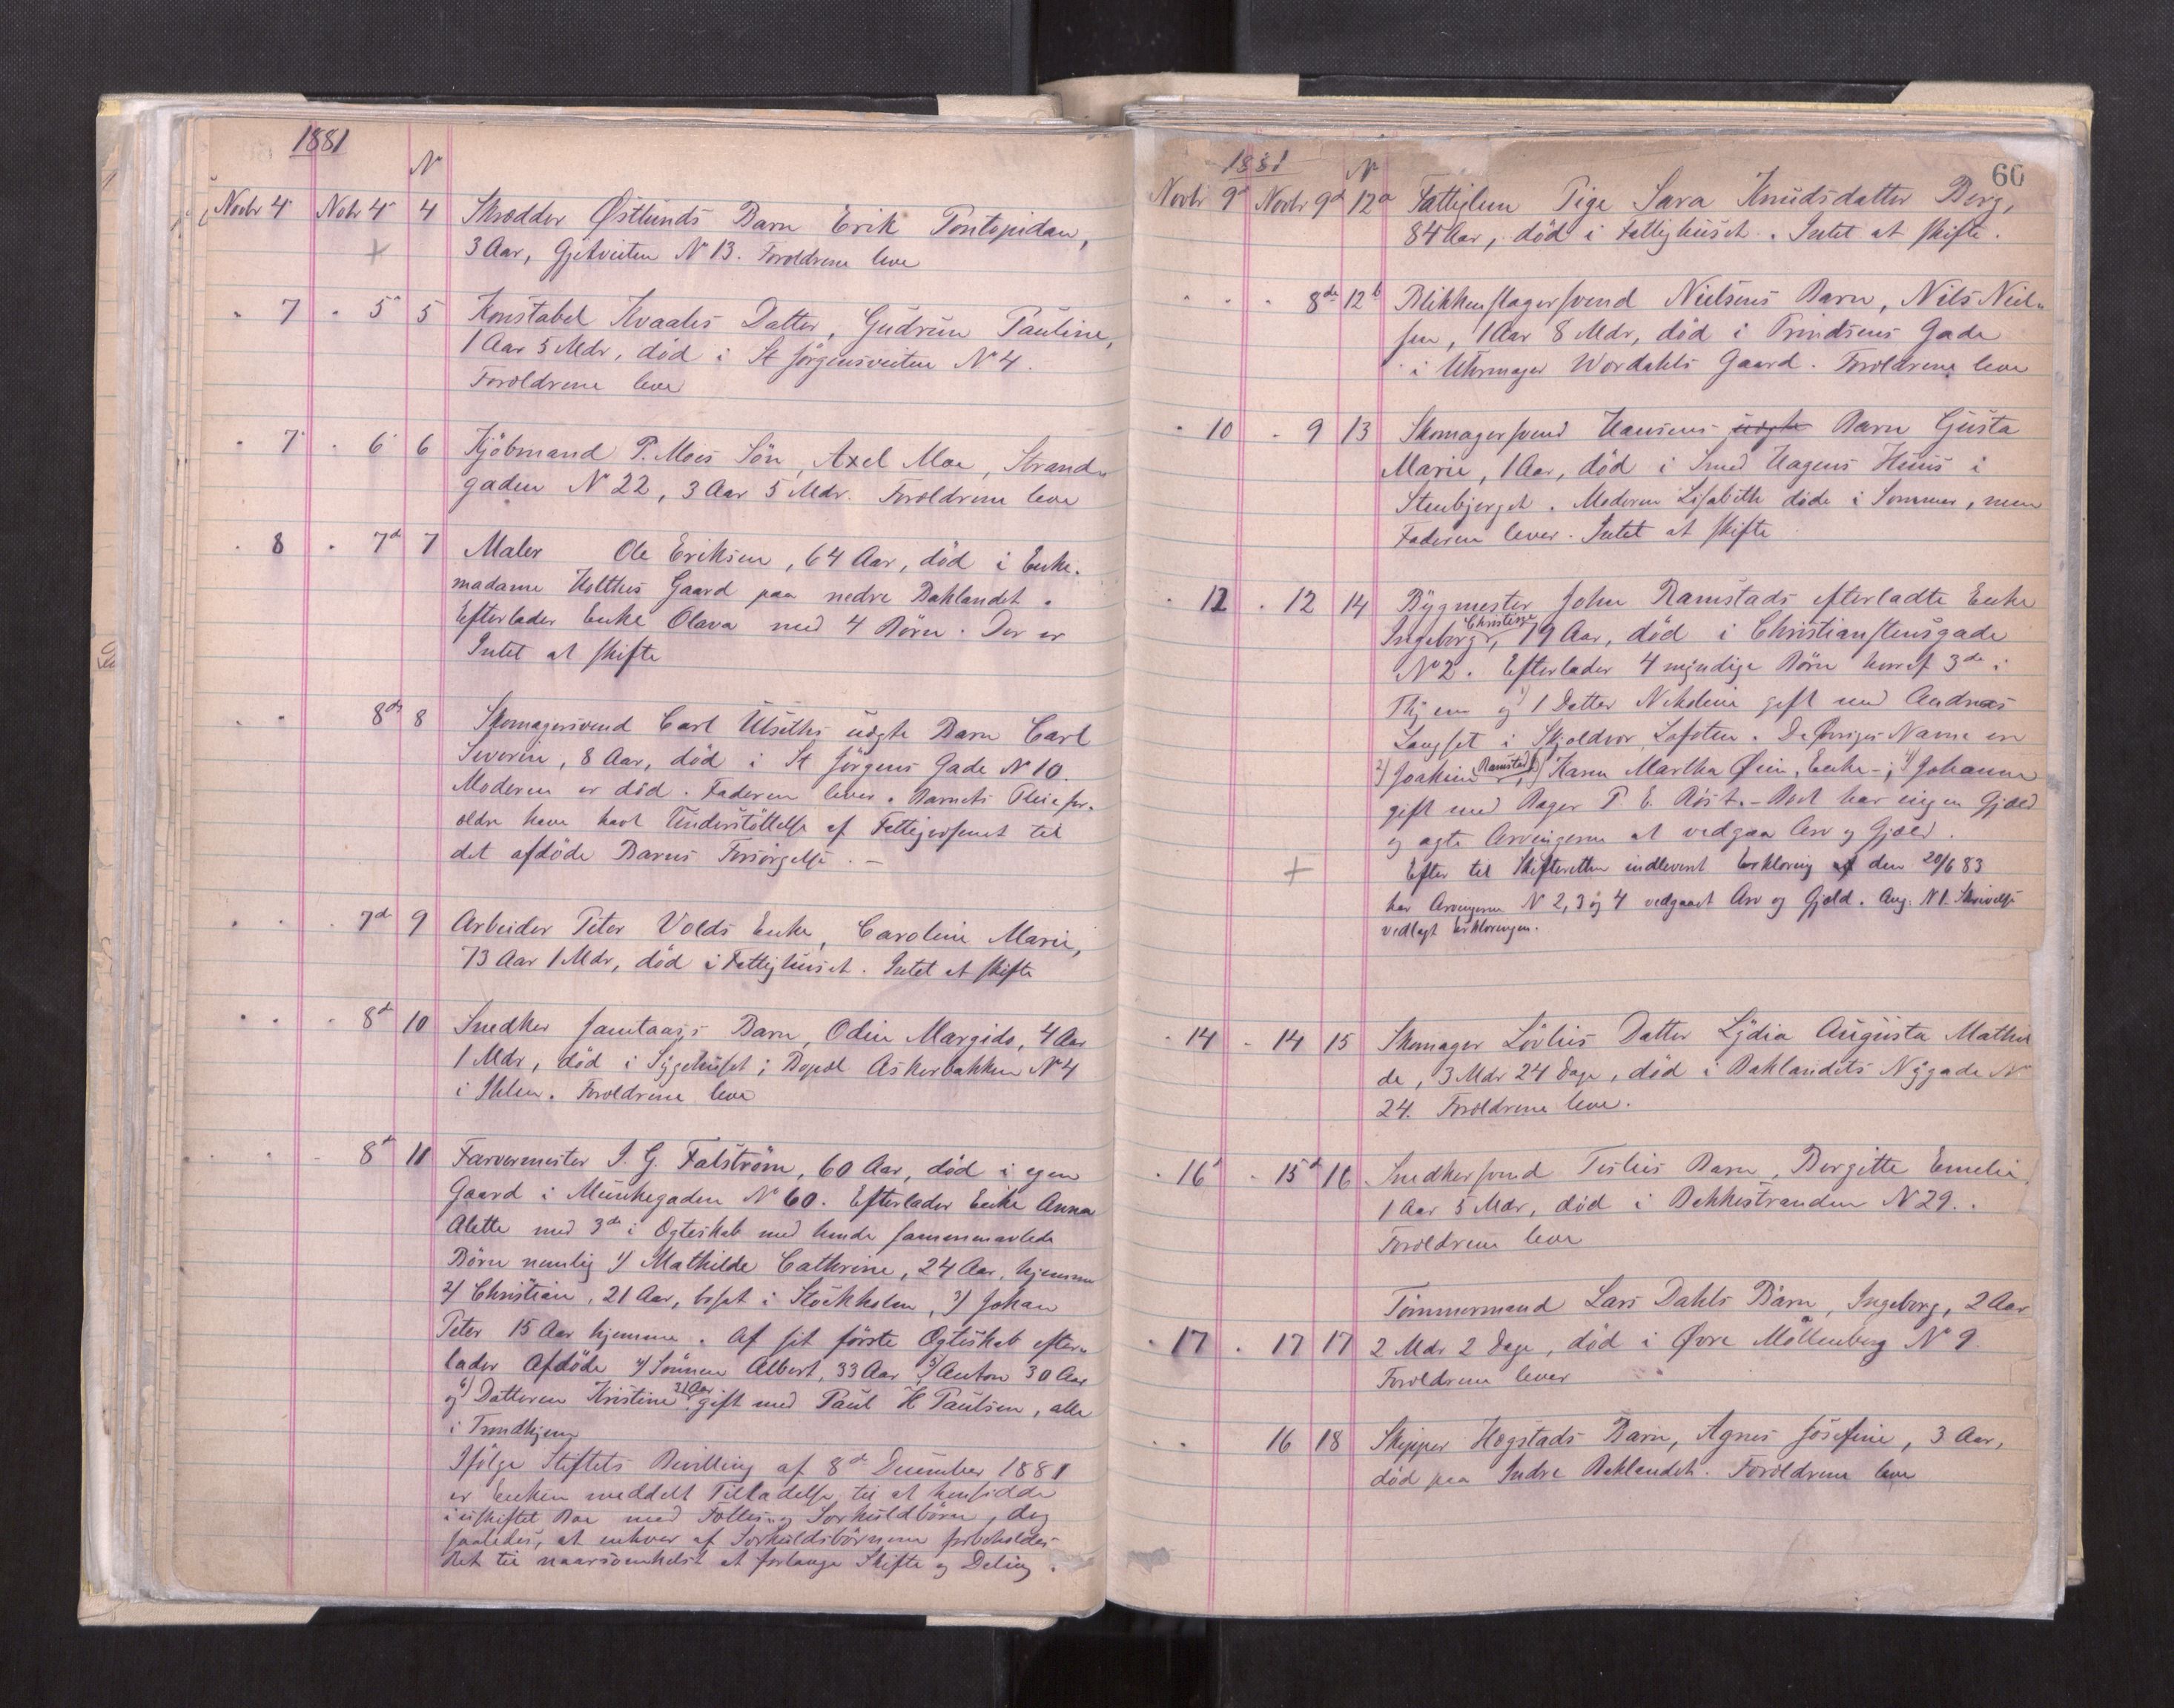 1881
N
Novbr 4 Nobr 4 4 Skrædder Østlunds Barn Erik Pontopidan,
3 Aar, Gjetveiten N 13. Forældrene leve
" 7 " 5 5 Konstabel Kvaales Datter, Gudrun Pauline,
1 Aar 5 Mdr, död i St Jörgensveiten N 4.
Forældrene leve
" 7 " 6 6 Kjöbmand P. Moes Sön, Axel Moe, Strand-
gaden N 22, 3 Aar 5 Mdr. Forældrene leve
" 8 " 7d 7 Maler Ole Eriksen, 64 Aar, död i Enke-
madame Holthes Gaard paa nedre Baklandet.
Efterlader Enke Olava med 4 Börn. Der er
Intet at skifte
" " 8de 8 Skomagersvend Carl Ulseths uægte Barn Carl
Severin, 8 Aar, död i St Jörgens Gade N 10.
Moderen er död. Faderen lever. Barnets Pleiefor-
ældre have havt Understöttelse af Fattigvæsenet til
det afdöde Barns Forsörgelse. -
" " " 7de 9 Arbeider Peter Volds Enke, Caroline Marie,
73 Aar 1 Mdr, död i Fattighuset. Intet at skifte
" " " 8de 10 Snedker Jamtaas's Barn, Odin Margido, 4 Aar
1 Mdr, död i Sygehuset; Bopæl Askerbakken N 4
i Ihlen. Forældrene leve
" " " 8de 11 Farvermester I. G. Falström, 60 Aar, död i egen
Gaard i Munkegaden N 60. Efterlader Enke Anna
Alette med 3de i Ægteskab med hende sammenavlede
Börn nemlig 1) Mathilde Cathrine, 24 Aar, hjemme
2) Christian, 21 Aar, bosat i Stockholm, 3) Johan
Peter 15 Aar hjemme. Af sit förste Ægteskab efter-
lader Afdöde 4) Sönnen Albert, 33 Aar, 5) Anton 30 Aar
og 6) Datteren Kristine 31 Aar gift med Paul H Paulsen, alle
i Trondhjem
Ifölge Stiftets Bevilling af 8de December 1881
er Enken meddelt Tilladelse til at hensidde
i uskiftet Bo med Fælles og Særkuldbörn, dog
saaledes, at enhver af Særkuldsbörnene forbeholdes
Ret til naarsomhelst at forlange Skifte og Deling.
60
1881
N
Novbr 9d Novbr 9d 12a Fattiglem Pige Sara Knudsdatter Berg,
84 Aar, död i Fattighuset. Intet at skifte.
" " " 8de 12b Blikkenslagersvend Nielsens Barn, Nils Niel-
sen, 1 Aar 8 Mdr, död i Prindsens Gade
i Uhrmager Wordahls Gaard. Forældrene leve
" 10 " 9 13 Skomagersvend Hansens uægte Barn Gusta
Marie, 1 Aar, död i Smed Hagens Huus i
Stenbjerget. Moderen Lisabeth döde i Sommer, men
Faderen lever. Intet at skifte
" 12 " 12 14 Bygmester John Ramstads efterladte Enke
Ingeborg Christine, 79 Aar, död i Christianstensgade
N 2. Efterlader 4 myndige Börn hvoraf 3de i
Thjem og 1) 1 Datter Nikoline gift med Andreas
Langset i Skjoldvær, Lofoten. De Øvriges Navne ere
2) Joakim Ramstad, 3) Karen Martha Øien, Enke -; 4) Johanna
gift med Bager P. E. Röst. - Boet har ingen Gjæld
og agte Arvingerne at vedgaa Arv og Gjæld.
Efter til Skifteretten indleveret Erklæring af den 20/6 83
har Arvingerne N 2, 3 og 4 vedgaaet Arv og Gjæld. Ang. N 1. Skrivelse
vedlagt Erklæringen.
" 14 " 14 15 Skomager Lövlies Datter Lydia Augusta Mathil
de, 3 Mdr 24 Dage, död i Baklandets Nygade N
24. Forældrene leve.
" 16d " 15d 16 Snedkersvend Teslies Barn, Bergitte Emelie,
1 Aar 5 Mdr, död i Bakkestranden N 29.
Forældrene leve
Tömmermand Lars Dahls Barn, Ingeborg, 2 Aar
" 17 " 17 17 2 Mdr 2 Dage, död i Øvre Möllenberg N 9.
Forældrene lever
" " 16 18 Skipper Hogstads Barn, Agnes Josefine, 3 Aar,
död paa Indre Baklandet. Forældrene leve